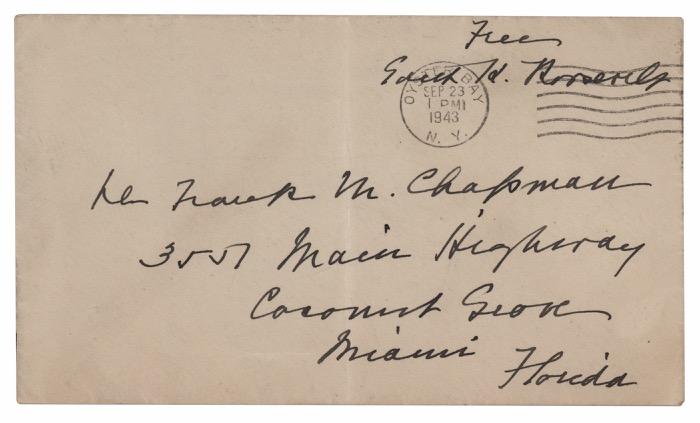 Free
Edith K. Roosevelt
OYSTER BAY
SEP 23
1 PM
1943
N. Y.
Mr Frank M. Chapman
3551 Main Highway
Coconut Grove
Miami
Florida